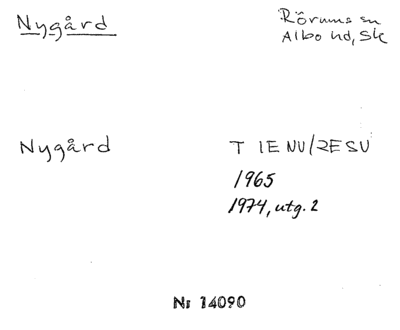 Nygård
Rörums sn
Albo hd, Sk
Nygård
T 1E NV/2E SV
1965
1974, utg. 2
Nr 14090